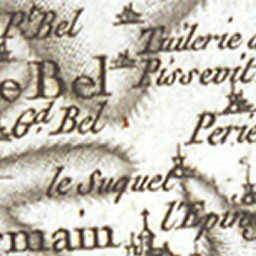 P.t Bel
Tuilerie d
e Bel
Pissevit
G.d Bel
Perie
le Suquet
l'Epin
rmain